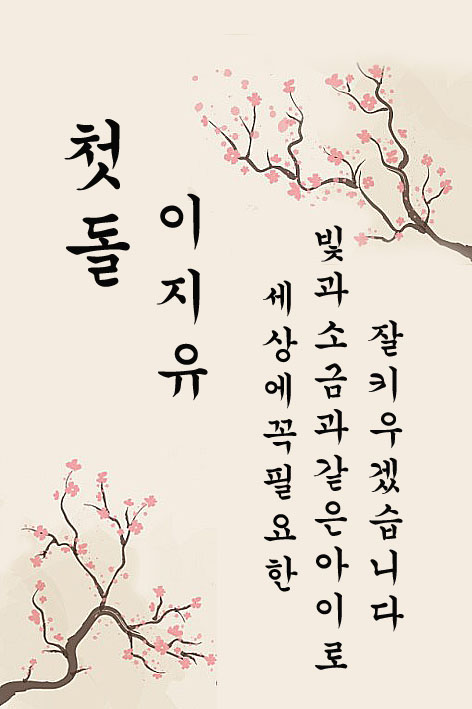 첫돌
이지유
세상에꼭필요한
빛과소금과같은아이로
잘키우겠습니다